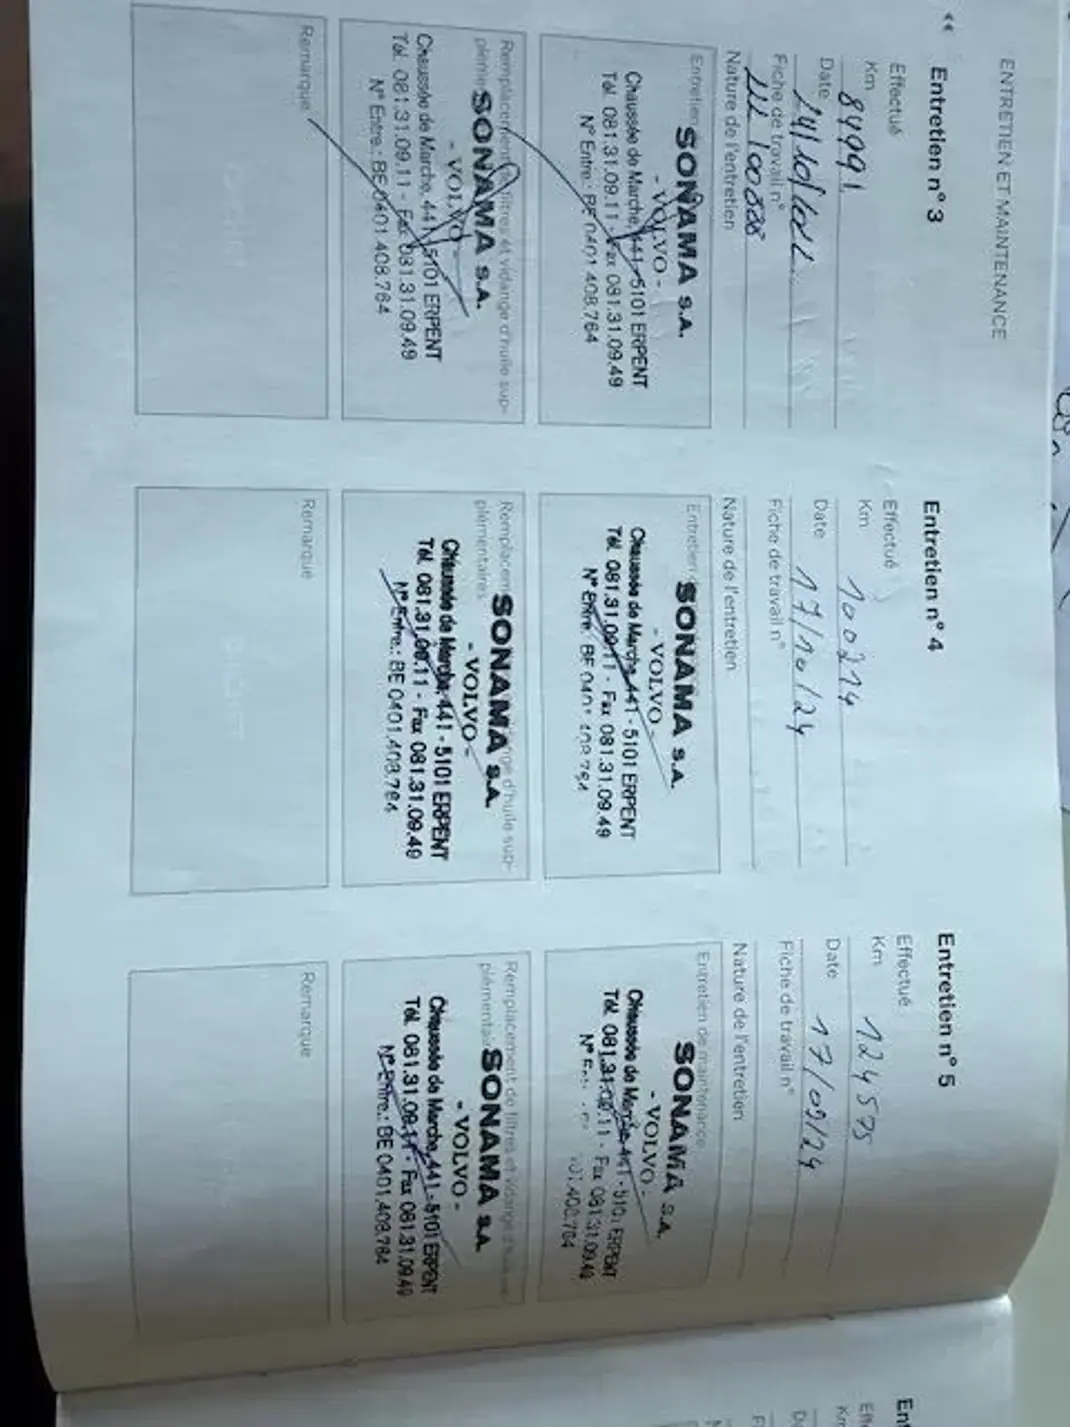 ENTRETIEN ET MAINTENANCE
<<
Entretien n° 3
Effectué
Km 84991
Date 14/10/2022
Fiche de travail n°
100838
Nature de l'entretien
Entretien
SONAMA S.A.
- VOLVO -
Chaussée de Marche, 441 - 5101 ERPENT
Tél. 081.31.09.11 - Fax 081.31.09.49
N° Entre.: BE 0401.408.764
Remplacement de filtres et vidange d'huile sup-
plémen
SONAMA S.A.
- VOLVO -
Chaussée de Marche, 441 - 5101 ERPENT
Tél. 081.31.09.11 - Fax 081.31.09.49
N° Entre.: BE 0401.408.764
Remarque
Entretien n° 4
Effectué
Km 100214
Date 17/10/24
Fiche de travail n°
Nature de l'entretien
Entretien
SONAMA S.A.
- VOLVO -
Chaussée de Marche, 441 - 5101 ERPENT
Tél. 081.31.09.11 - Fax 081.31.09.49
N° Entre.: BE 0401.408.764
Remplacem ge d'huile sup-
plémentaires
SONAMA S.A.
- VOLVO -
Chaussée de Marche, 441 - 5101 ERPENT
Tél. 081.31.09.11 - Fax 081.31.09.49
N° Entre.: BE 0401.408.764
Remarque
Entretien n° 5
Effectué
Km 124575
Date 17/09/24
Fiche de travail n°
Nature de l'entretien
Entretien de maintenance
SONAMA S.A.
- VOLVO -
Chaussée de Marche, 441 - 5101 ERPENT
Tél. 081.31.09.11 - Fax 081.31.09.49
N° 401.408.764
Remplacement de filtres et vidange d'huile
plémentai
SONAMA S.A.
- VOLVO -
Chaussée de Marche, 441 - 5101 ERPENT
Tél. 081.31.09.11 - Fax 081.31.09.49
N° Entre.: BE 0401.408.764
Remarque